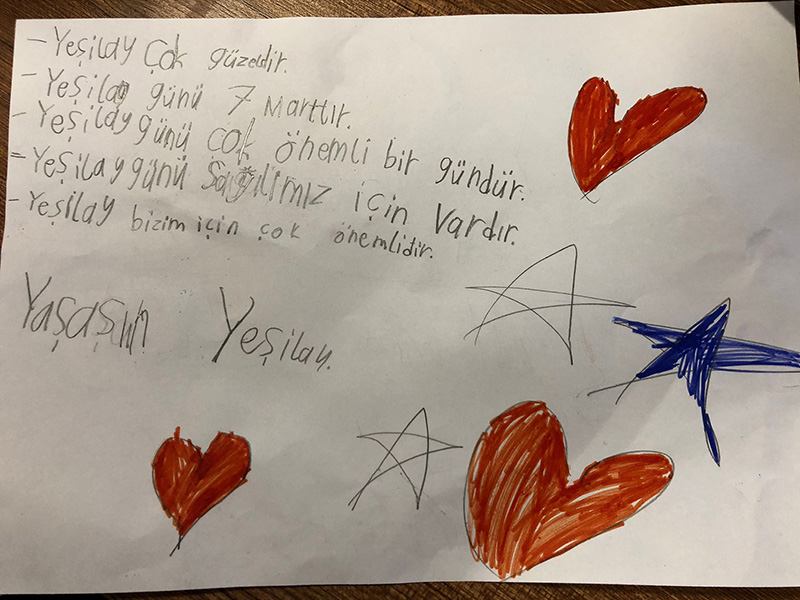 - Yeşilay Çok güzeldir.
- Yeşilay günü 7 Marttır.
- Yeşilay günü çok önemli bir gündür.
= Yeşilay günü Sağlimiz için Vardır.
- Yeşilay bizim için çok önemlidir.
Yaşaşın Yeşilay.